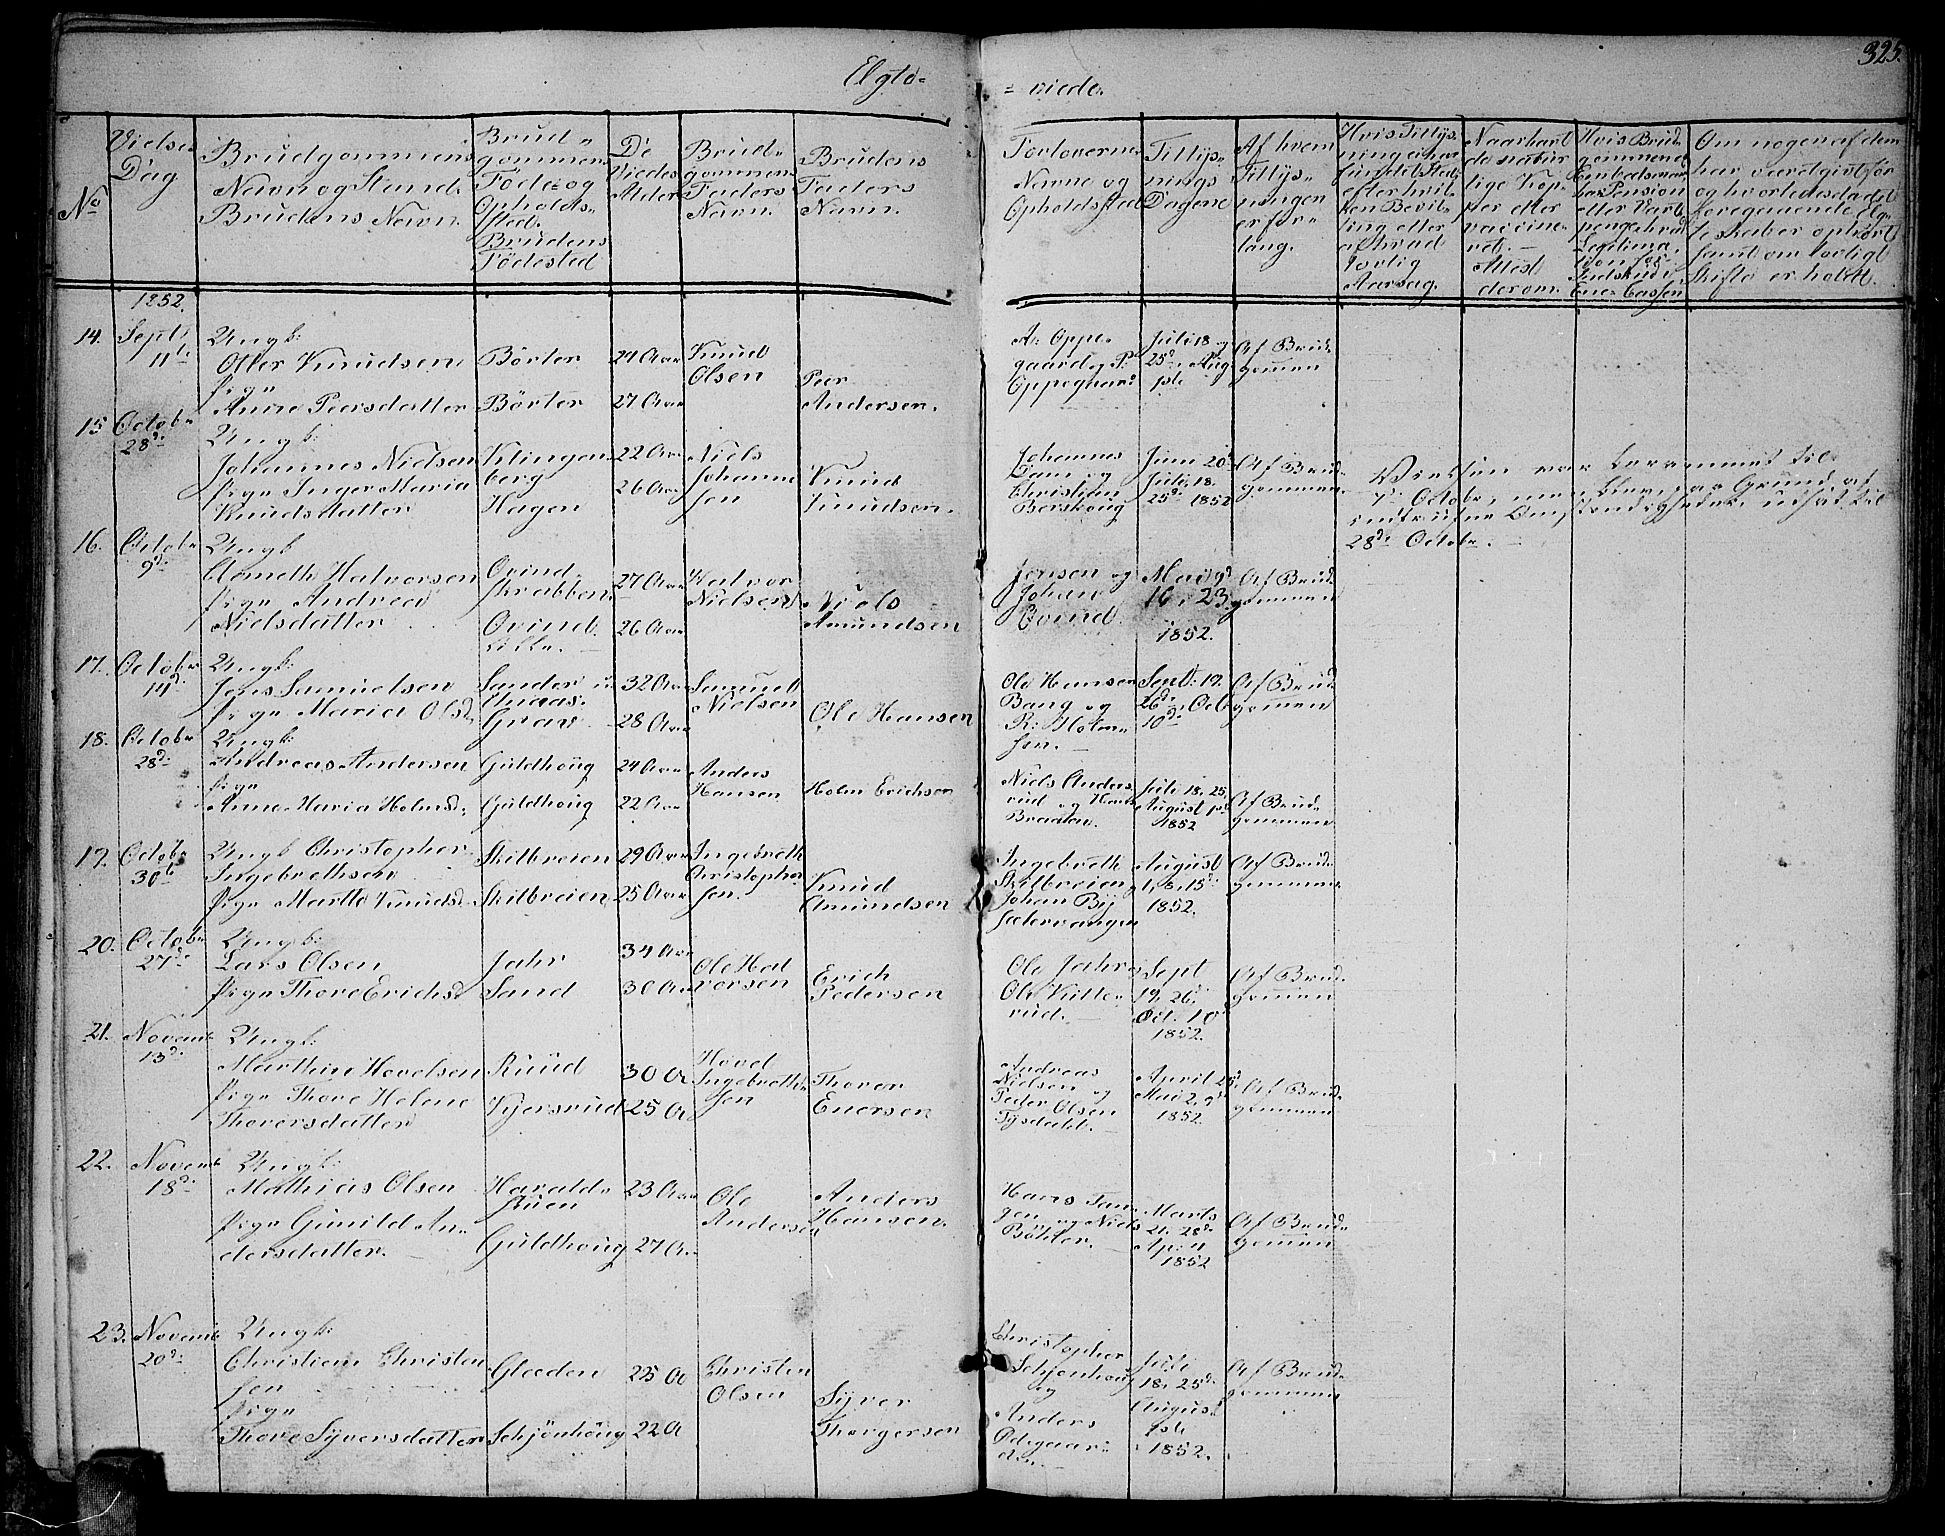 325.
Elgto=
= viede.
No
Vielses
Dag
Brudgommens
Navn og Stand.
Brudens Navn.
Brud=
gommens
Føde= og
Opholds=
sted.
Brudens
Fødested
De
Viedes
Alder
Brud=
gommens
Faders
Navn.
Brudens
Faders
Navn.
Forlovernes
Navne og
Opholdssted
Tillys=
nings
Dagene
Af hvem
Tillys=
ningen
er for=
lang.
Hvis Tillys=
ning ei har
fundet Sted
efter hvil=
ken Bevil=
ling eller
af hvad
lovlig
Aarsag.
Naar havt
de natur
lige Kop=
per eller
vaccine=
ret. —
Attest
derom.
Hvis Brud=
gommen er
Embedsmand
has Pension
eller Vart
penge hvad
Legitima
tion for
Indskud i
Enke Cassen
Om nogen af dem
har været givt før
og hvorledes da det
foregaaende Æg=
teskaber ophørt
samt om lovligt
Skifte er holdt.
1852.
14. Septb
11te
Ungk:
Oller Knudsen
Pige
Anne Peersdatter
Børter
Børter
24 Aar
27 Aar
Knud
Olsen
Peer
Andersen.
A: Oppe=
gaard og P:
Oppegaard
Juli 18 og
25de, Aug
1ste
Af Brud=
gommen
15 Octobr
28de
Ungk:
Johannes Nielsen
Pige Inger Maria
Knudsdatter
Klingen=
berg
Hagen
22 Aar
26 Aar
Niels
Johanne
sen
Knud
Knudsen.
Johannes
Dam og
Christian
Berskoug
Juni 20de
Juli 18.
25de 1852
Af Brud=
gommen
Vielsen var berammet til
7de Octobr, men blev paa Grund af
indtrufne Omstændigheder udsat til
28de Octobr. —
16. Octobr
9de
Ungk
Ameth Halvorsen
Pige Andrea
Nielsdatter
Ovind
Skrabben
Ovind
Lille. —
27 Aar
26 Aar
Halvor
Nielsen
Niels
Amundsen
Jensen og
Johan
Ovind
Mai 9de
16, 23
1852.
Af Brud=
gommen
17. Octobr
14de
Ungk:
Jens Samuelsen
Pige Maria Olsd.
Sander i
Grav
32 Aar
28 Aar
Samuel
Nielsen
Ole Hansen
Ole Hansen
Bang og
R: Holm=
sen. —
Sept: 19.
26de, Oct
10de
Af Brud=
gommen
18. Octobr
28de
Ungk:
Andreas Andersen
Pige
Anne Maria Holmsd:
Guldhoug
Guldhoug
24 Aar
22 Aar
Anders
Hansen
Holm Erichsen
Niels Anders
rud og Hans
Braaten.
Juli 18, 25,
August 1ste
1852
Af Brud=
gommen
19. Octobr
30te
Ungk Christopher
Ingebrethsen
Pige Marthe Knudsd
Skilbreien
Skilbreien
29 Aar
25 Aar
Ingebreth
Christopher
sen.
Knud
Amundsen
Ingebreth
Skilbreien
Johan By
sætervangen
August
1, 8, 15de
1852.
Af Brud=
gommen
20. Octobr
27de
Ungk:
Lars Olsen
Pige Thore Erichsd
Jahr
Sand
34 Aar
30 Aar
Ole Hal
vorsen
Erich
Pedersen
Ole Jahr
Ole Kulle=
rud. —
Sept
19, 26
Oct. 10
1852.
Af Brud=
gommen
21. Novemb
13de
Ungk:
Marthin Hovelsen
Pige Thore Helene
Thoversdatter
Ruud
Kjersrud
30 A
25 A
Hovel
Ingebreth
sen
Thorer
Enersen
Andreas
Nielsen og
Peder Olsen
Tysdahl. —
April 25
Mai 2, 9de
1852.
Af Brud=
gommen
22. Novemb
18de
Ungk:
Mathias Olsen
Pige Gunild An=
dersdatter. —
Harald=
ruen
Guldhoug
23 Aar
27 Aar
Ole
Andersen
Anders
Hansen.
Hans Tan=
gen og Niels
Böhler. —
Marts
21, 28de
Apr. 11
1852
Af Brud=
gommen
23. Novemb
20de
Ungk:
Christian Christen
sen
Pige
Thore Syversdatter
Glæden
Schjönhoug
25 A
22 A
Christen
Olsen
Syver
Thorgersen
Christopher
Schjønhoug
og
Anders
Ødegaar=
den. —
Juli
18, 25de
August
1ste
1852.
Af Brud=
gommen